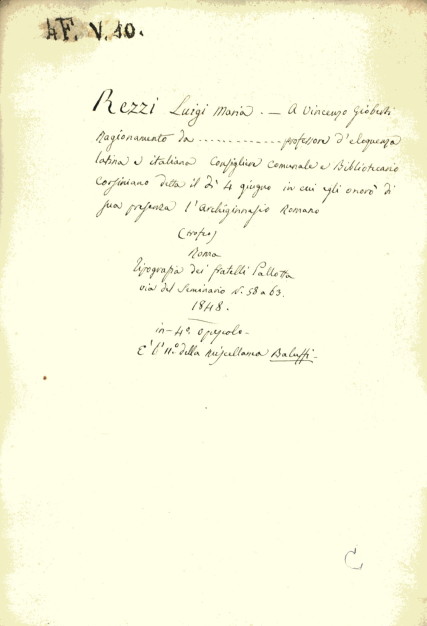 4F. V. 10.
Rezzi Luigi Maria. — A Vincenzo Gioberti
Ragionamento da ............. professore d'eloquenza
latina e italiana Consigliere comunale e Bibliotecario
Corsiniano detta il dì 4 giugno in cui egli onorò di
sua presenza l'Archiginnasio Romano
Roma
Tipografia dei fratelli Pallotta
via del Seminario N. 58 a 63.
1848.
in-4° opuscolo-
È l'11° della Miscellanea Baluffi-
C